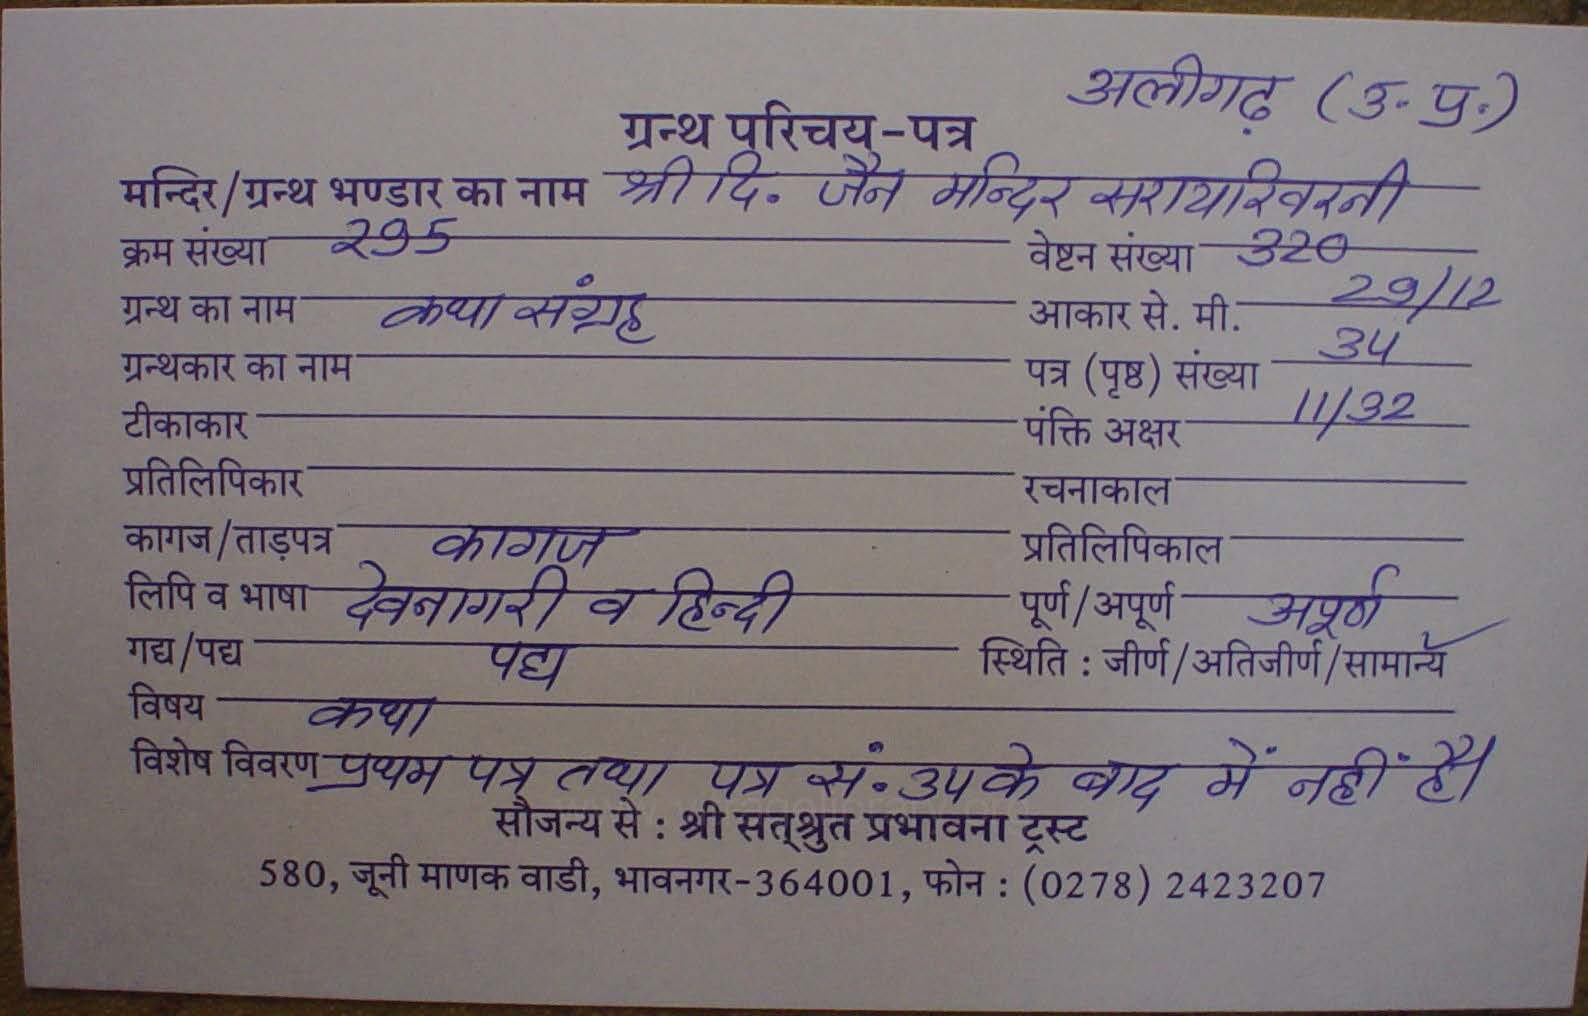 अलीगढ़ (उ. प्र.)
ग्रन्थ परिचय-पत्र
मन्दिर/ग्रन्थ भण्डार का नाम श्री दि. जैन मन्दिर सरायखिरनी
क्रम संख्या 295 वेष्टन संख्या 320
ग्रन्थ का नाम कथा संग्रह आकार से. मी. 29/12
ग्रन्थकार का नाम पत्र (पृष्ठ) संख्या 34
टीकाकार पंक्ति अक्षर 11/32
प्रतिलिपिकार रचनाकाल
कागज/ताड़पत्र कागज प्रतिलिपिकाल
लिपि व भाषा देवनागरी व हिन्दी पूर्ण/अपूर्ण अपूर्ण
गद्य/पद्य पद्य स्थिति : जीर्ण/अतिजीर्ण/सामान्य
विषय कथा
विशेष विवरण प्रथम पत्र तथा पत्र सं. 34 के बाद में नहीं है।
सौजन्य से : श्री सत्श्रुत प्रभावना ट्रस्ट
580, जूनी माणक वाडी, भावनगर-364001, फोन : (0278) 2423207